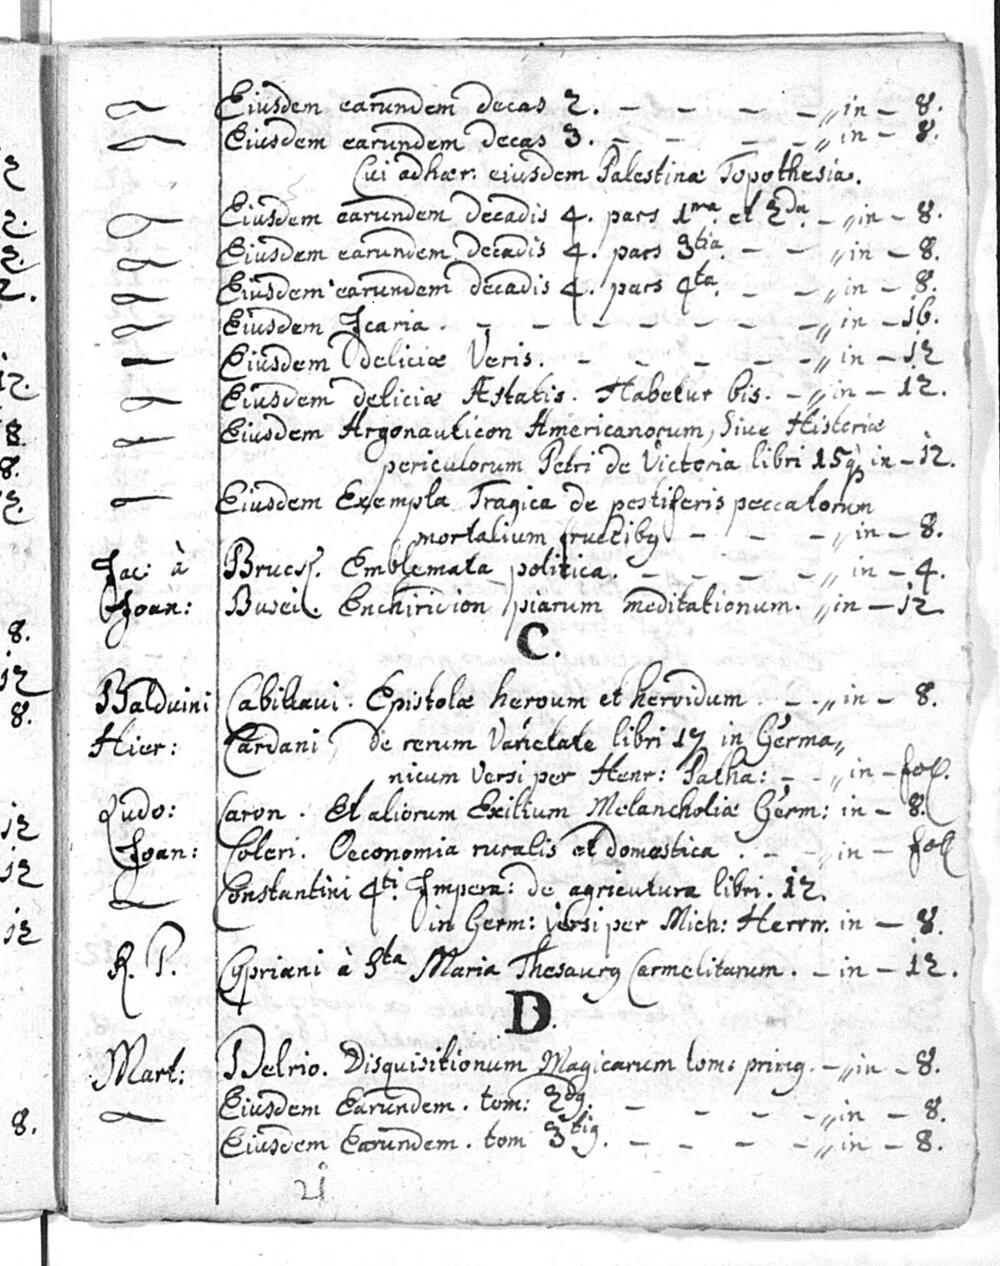 Eiusdem earundem decas 2. – – – – „ in – 8.
Eiusdem earundem decas 3. – – – – „ in – 8.
Cui adhær: eiusdem Palestinæ Topothesia.
Eiusdem earundem decadis 4. pars 1ma. et 2da. – „ in – 8.
Eiusdem earundem decadis 4. pars 3tia. – – „ in – 8.
Eiusdem earundem decadis 4. pars 4ta. – – „ in – 8.
Eiusdem Icaria. – – – – – – – „ in – 16.
Eiusdem deliciæ Veris. – – – – – „ in – 12
Eiusdem deliciæ Æstatis. Habetur bis. – „ in – 12.
Eiusdem Argonauticon Americanorum, Siue Historiæ
periculorum Petri de Victoria libri 15. in – 12.
Eiusdem Exempla Tragica de pestiferis peccatorum
mortalium fructibꝰ – – – „ in – 8.
Jac: à Bruck. Emblemata politica. – – – – „ in – 4.
Joan: Busei. Enchiridion piarum meditationum. „ in – 12
C.
Balduini Cabillaui. Epistolæ heroum et heroidum. – „ in – 8.
Hier: Cardani, de rerum Varietate libri 17 in Germa„
nicum versi per Henr: Patha: – – „ in – fol.
Ludo: Caron. Et aliorum Exilium Melancholiæ Germ: in – 8.
Joan: Coleri. Oeconomia ruralis et domestica. – – „ in – fol
Constantini 4ti. Impera: de agricutura libri. 12.
in Germ: versi per Mich: Herrn. in – 8.
R. P. Cypriani à Sta Maria Thesaurꝰ Carmelitarum. – in – 12.
D.
Mart: Delrio. Disquisitionum Magicarum tom: primꝰ. – „ in – 8.
Eiusdem Earundem. tom: 2dꝰ. – – – – „ in – 8.
Eiusdem Earundem. tom 3tiꝰ. – – – – „ in – 8.
21